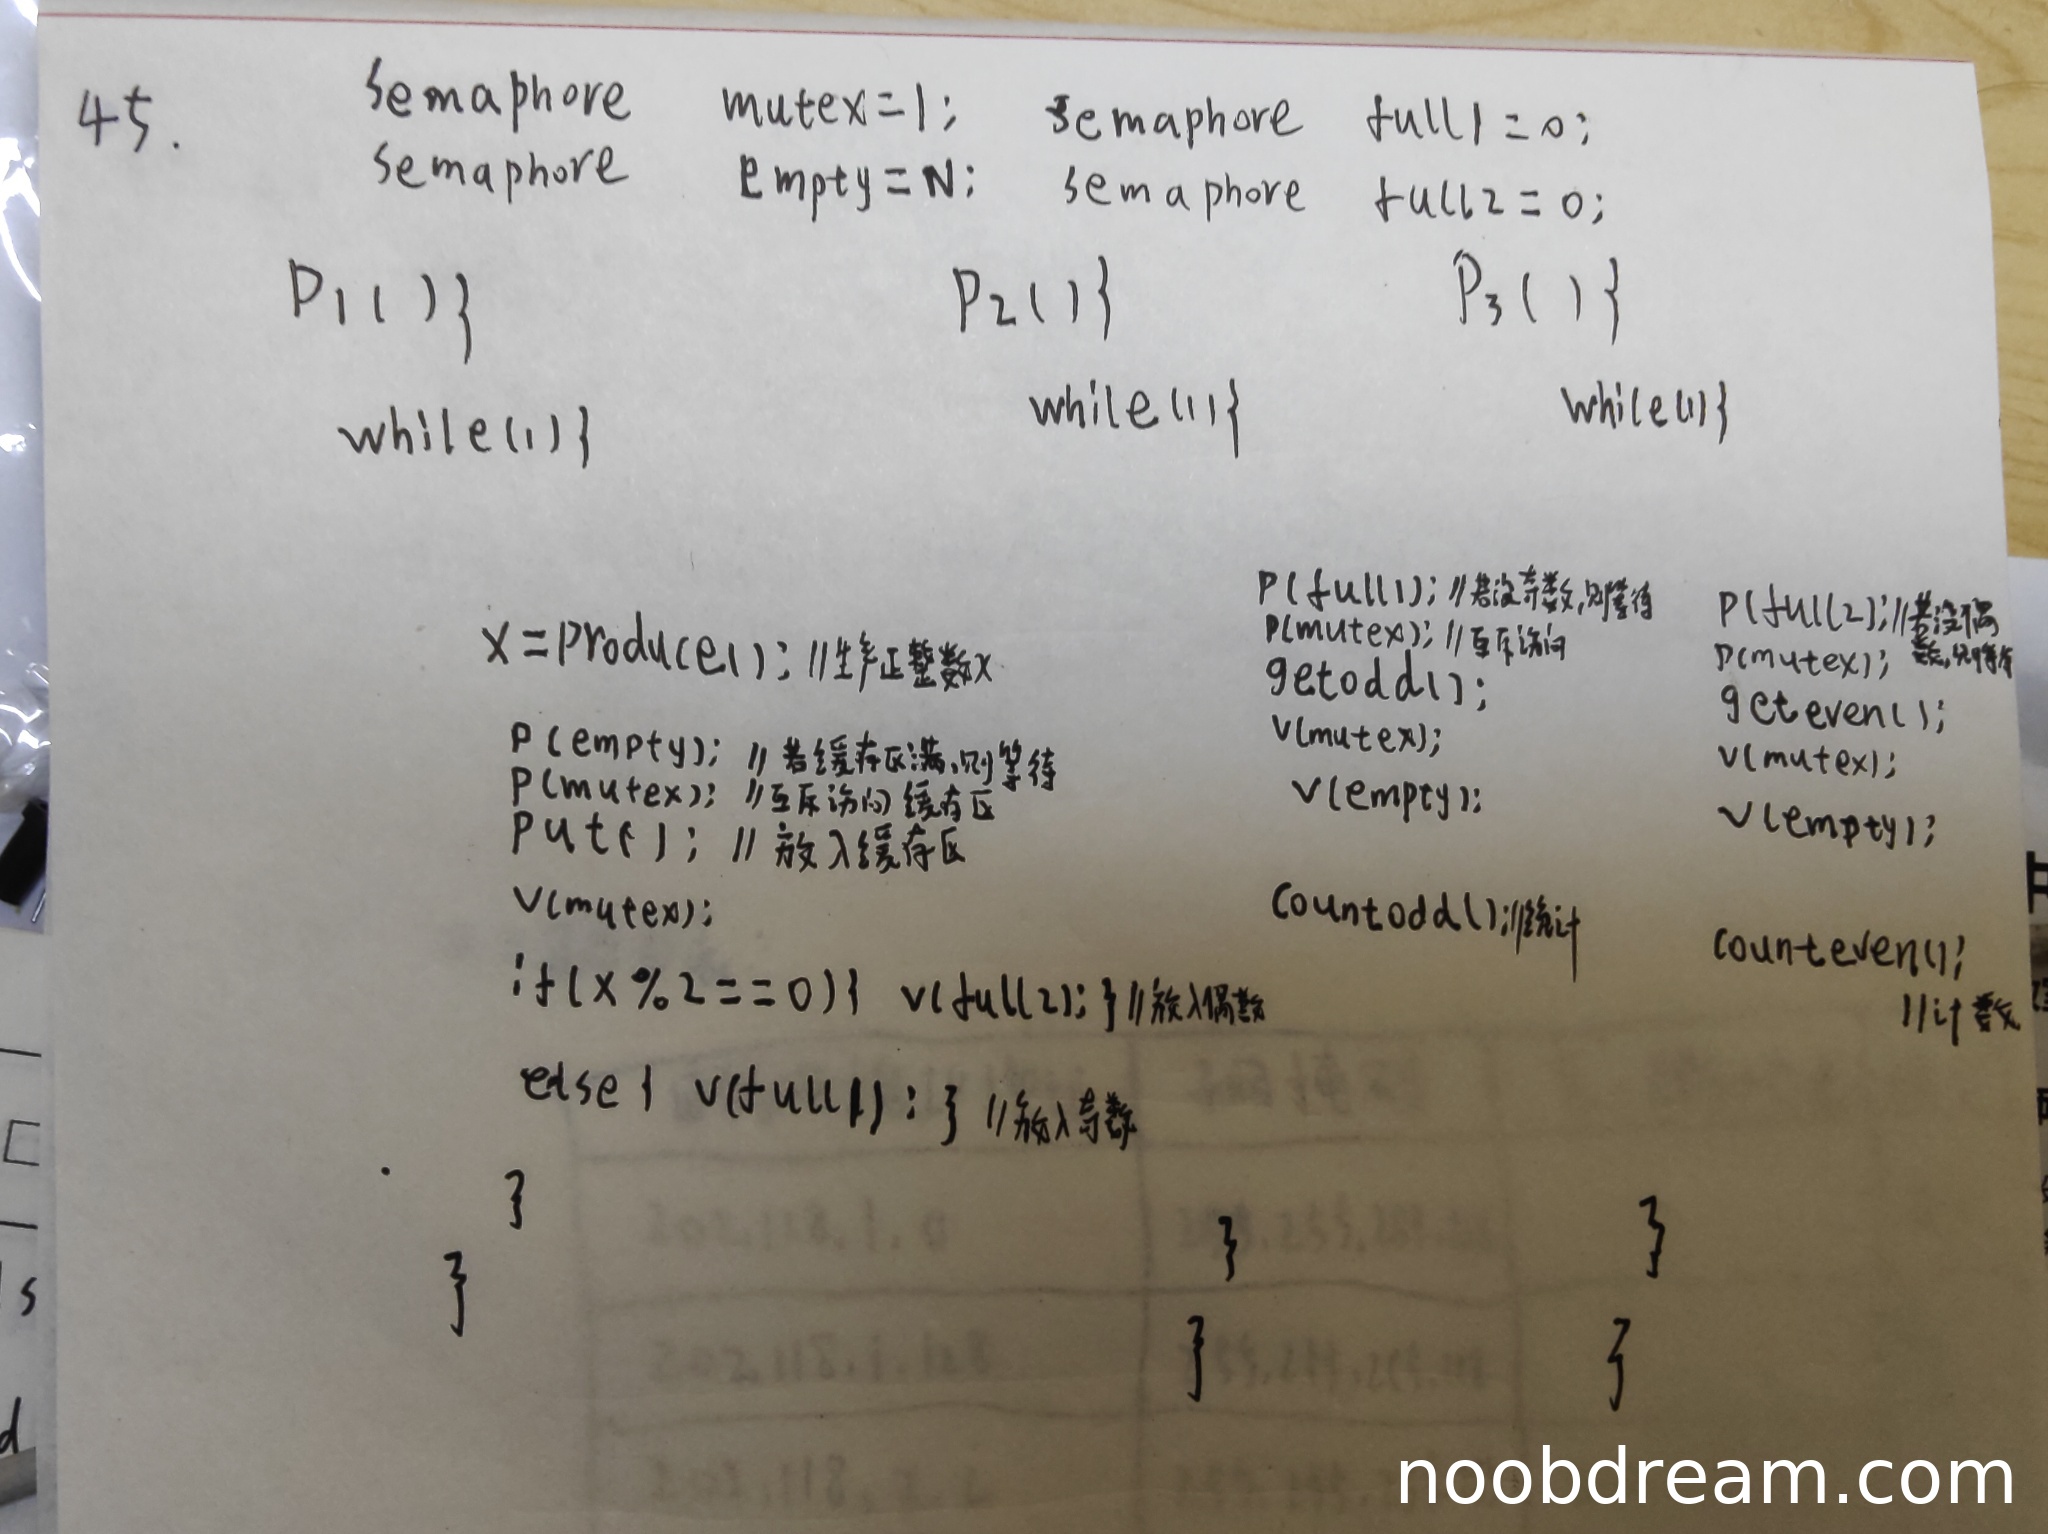 45.
semaphore mutex=1; semaphore full1=0;
semaphore empty=N; semaphore full2=0;
P1(){
while(1){
x=produce(); //生产正整数x
P(empty); //若缓存区满,则等待
P(mutex); //互斥访问缓存区
put(); //放入缓存区
V(mutex);
if(x%2==0){ V(full2); } //放入偶数
else{ V(full1); } //放入奇数
}
}
P2(){
while(1){
P(full1); //若没奇数,则等待
P(mutex); //互斥访问
getodd();
V(mutex);
V(empty);
countodd(); //统计
}
}
P3(){
while(1){
P(full2); //若没偶
数,则等待
P(mutex);
geteven();
V(mutex);
V(empty);
counteven();
//计数
}
}
noobdream.com